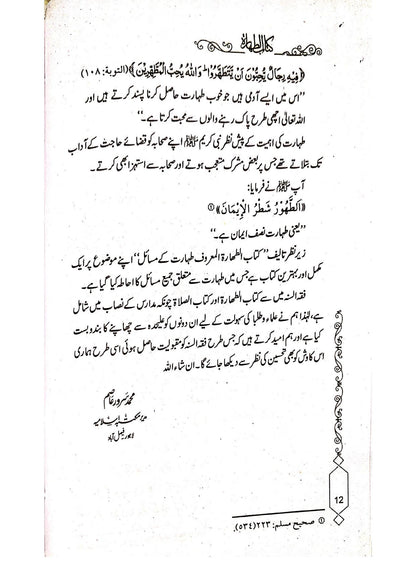 کتاب الطہارۃ
﴿فِيهِ رِجَالٌ يُحِبُّونَ أَنْ يَتَطَهَّرُوا ۚ وَاللَّهُ يُحِبُّ الْمُطَّهِّرِينَ﴾ (التوبة: ١٠٨)
”اس میں ایسے آدمی ہیں جو خوب طہارت حاصل کرنا پسند کرتے ہیں اور
اللہ تعالیٰ اچھی طرح پاک رہنے والوں سے محبت کرتا ہے۔“
طہارت کی اہمیت کے پیش نظر نبی کریم ﷺ اپنے صحابہ کو قضائے حاجت کے آداب
تک بتلاتے تھے جس پر بعض مشرک متعجب ہوتے اور صحابہ سے استہزا بھی کرتے۔
آپ ﷺ نے فرمایا:
«اَلطَّهُوْرُ شَطْرُ الْإِيْمَانِ» ①
”یعنی طہارت نصف ایمان ہے۔“
زیر نظر تالیف ”کتاب الطھارۃ المعروف طہارت کے مسائل“ اپنے موضوع پر ایک
مکمل اور بہترین کتاب ہے جس میں طہارت سے متعلق جمیع مسائل کا احاطہ کیا گیا ہے۔
فقہ السنہ میں سے کتاب الطھارۃ اور کتاب الصلاۃ چونکہ مدارس کے نصاب میں شامل
ہے، لہٰذا ہم نے علماء و طلبا کی سہولت کے لیے ان دونوں کو علیحدہ سے چھاپنے کا بندوبست
کیا ہے اور ہم امید کرتے ہیں کہ جس طرح فقہ السنہ کو مقبولیت حاصل ہوئی اسی طرح ہماری
اس کاوش کو بھی تحسین کی نظر سے دیکھا جائے گا۔ ان شاء اللہ
محمد سرور عاصم
مدیر مکتبہ اسلامیہ
لاہور فیصل آباد
12
① صحیح مسلم: ٢٢٣ (٥٣٤).